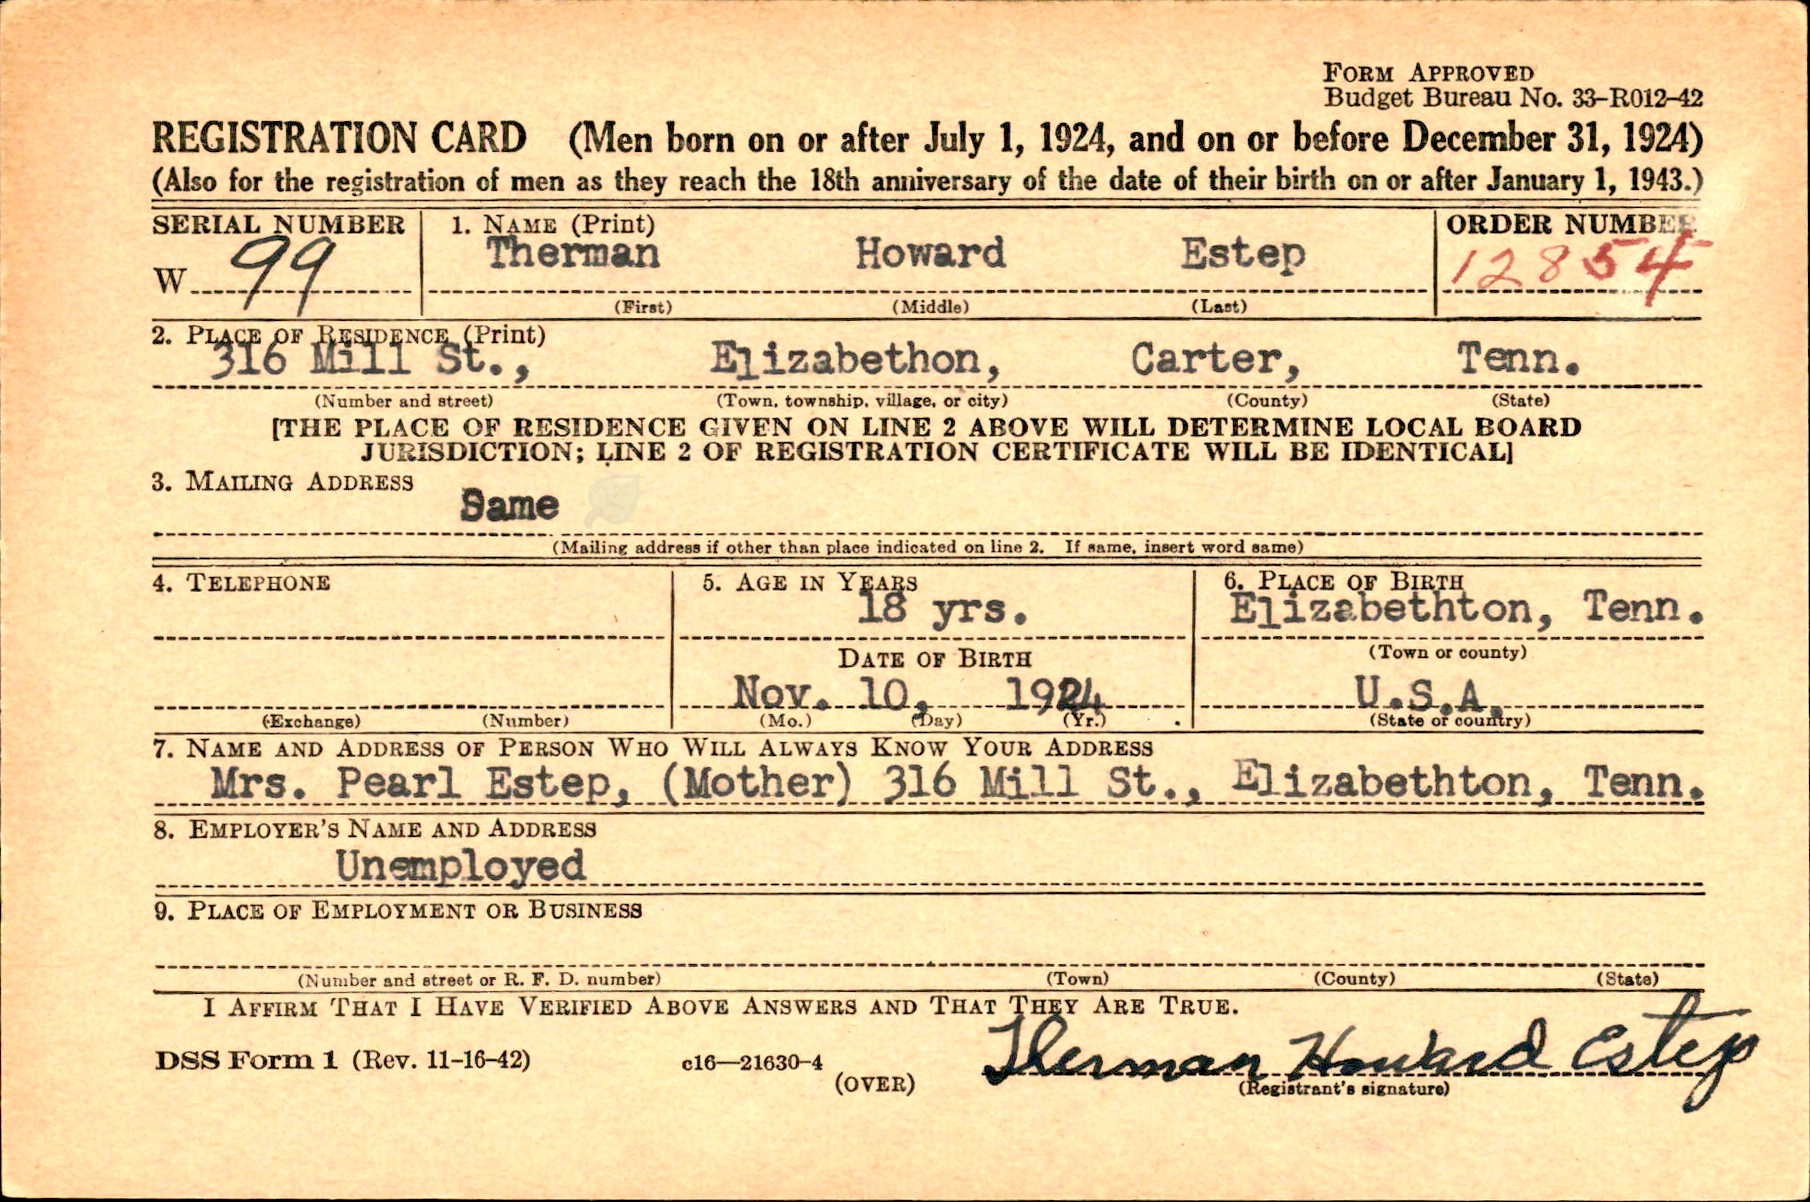 FORM APPROVED
Budget Bureau No. 33-R012-42
REGISTRATION CARD (Men born on or after July 1, 1924, and on or before December 31, 1924)
(Also for the registration of men as they reach the 18th anniversary of the date of their birth on or after January 1, 1943.)
SERIAL NUMBER 1. NAME (Print) ORDER NUMBER
W 99 Therman Howard Estep 12854
(First) (Middle) (Last)
2. PLACE OF RESIDENCE (Print)
316 Mill St., Elizabethon, Carter, Tenn.
(Number and street) (Town, township, village, or city) (County) (State)
[THE PLACE OF RESIDENCE GIVEN ON LINE 2 ABOVE WILL DETERMINE LOCAL BOARD
JURISDICTION; LINE 2 OF REGISTRATION CERTIFICATE WILL BE IDENTICAL]
3. MAILING ADDRESS
Same
(Mailing address if other than place indicated on line 2. If same, insert word same)
4. TELEPHONE 5. AGE IN YEARS 6. PLACE OF BIRTH
18 yrs. Elizabethton, Tenn.
DATE OF BIRTH (Town or county)
Nov. 10, 1924 U.S.A.
(Exchange) (Number) (Mo.) (Day) (Yr.) (State or country)
7. NAME AND ADDRESS OF PERSON WHO WILL ALWAYS KNOW YOUR ADDRESS
Mrs. Pearl Estep, (Mother) 316 Mill St., Elizabethton, Tenn.
8. EMPLOYER'S NAME AND ADDRESS
Unemployed
9. PLACE OF EMPLOYMENT OR BUSINESS
(Number and street or R. F. D. number) (Town) (County) (State)
I AFFIRM THAT I HAVE VERIFIED ABOVE ANSWERS AND THAT THEY ARE TRUE.
DSS Form 1 (Rev. 11-16-42) c16—21630-4 Therman Howard Estep
(OVER) (Registrant's signature)